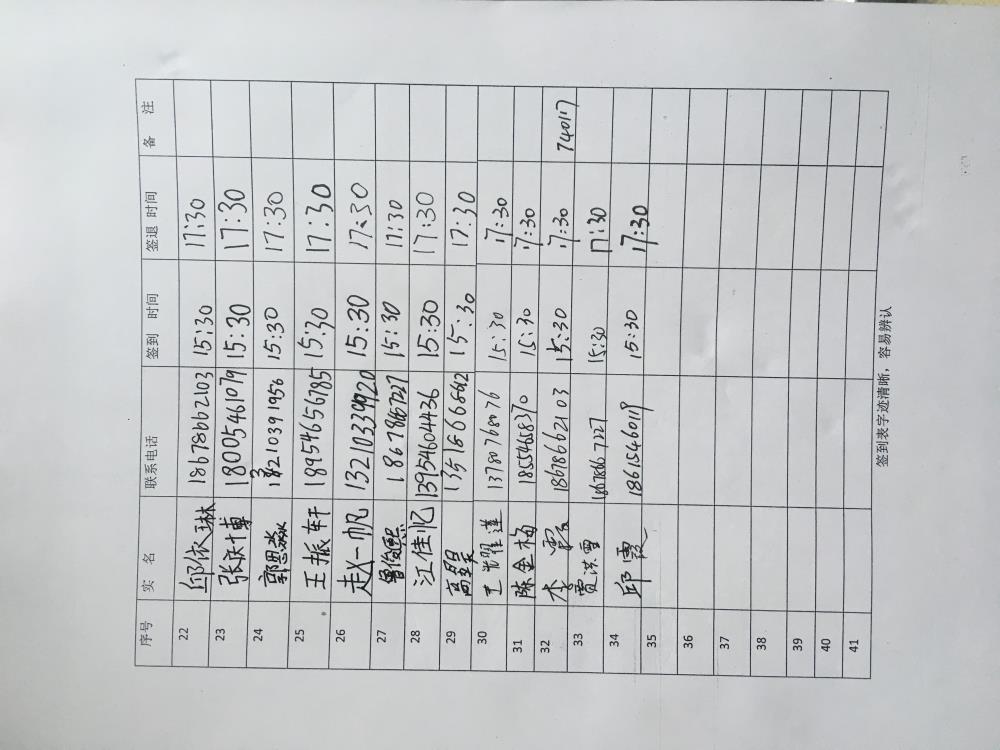 序号 实 名 联系电话 签到 时间 签退 时间 备 注
22 邱依琳 18678662103 15:30 17:30
23 张庆博 18005461079 15:30 17:30
24 郭思淼 13210391956 15:30 17:30
25 王振轩 18954656785 15:30 17:30
26 赵一帆 13210339920 15:30 17:30
27 曾俊熙 18678667227 15:30 17:30
28 江佳忆 13954604436 15:30 17:30
29 15:30 17:30
30 13780768076 15:30 17:30
31 陈金梅 18554658370 15:30 17:30
32 李霞 18678662103 15:30 17:30 740117
33 贾洪雪 18678667227 15:30 17:30
34 邱霞 18615460119 15:30 17:30
35
36
37
38
39
40
41
签到表字迹清晰，容易辨认